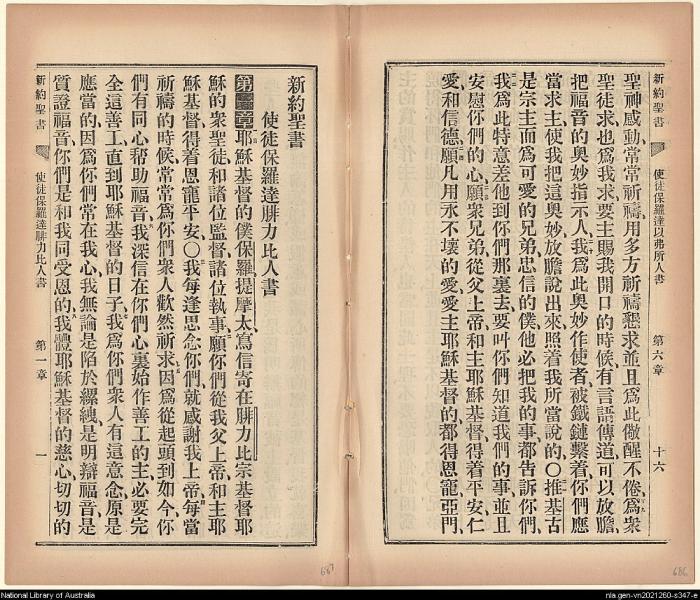 新約聖書
使徒保羅達以弗所人書
第六章
十六
聖神感動、常常祈禱、用多方祈禱懇求、並且爲此儆醒不倦、爲衆
聖徒求、也爲我求、要主賜我開口的時候、有言語傳道、可以放膽、
把福音的奧妙指示人、我爲此奧妙作使者、被鐵鏈繫着、你們應
當求主、使我把這奧妙放膽說出來、照着我所當說的、〇推基古
是宗主而爲可愛的兄弟、忠信的僕、他必把我的事都告訴你們、
我爲此特意差他到你們那裏去、要叫你們知道我們的事、並且
安慰你們的心、願衆兄弟、從父上帝和主耶穌基督、得着平安、仁
愛、和信德、願凡用永不壞的愛、愛主耶穌基督的、都得恩寵、亞門、
新約聖書
使徒保羅達腓力比人書
第一章耶穌基督的僕保羅、提摩太、寫信寄在腓力比、宗基督耶
穌的衆聖徒、和諸位監督、諸位執事、願你們從我父上帝、和主耶
穌基督、得着恩寵平安、〇我每逢思念你們、就感謝我上帝、每當
祈禱的時候、常常爲你們衆人歡然祈求、因爲從起頭到如今、你
們有同心幫助福音、我深信在你們心裏始作善工的主、必要完
全這善工、直到耶穌基督的日子、我爲你們衆人有這意念、原是
應當的、因爲你們常在我心、我無論是陷於縲絏、是明辯福音、是
質證福音、你們是和我同受恩的、我體耶穌基督的慈心、切切的
新約聖書
使徒保羅達腓力比人書
第一章
一
687
686
National Library of Australia
nla.gen-vn2021260-s347-e